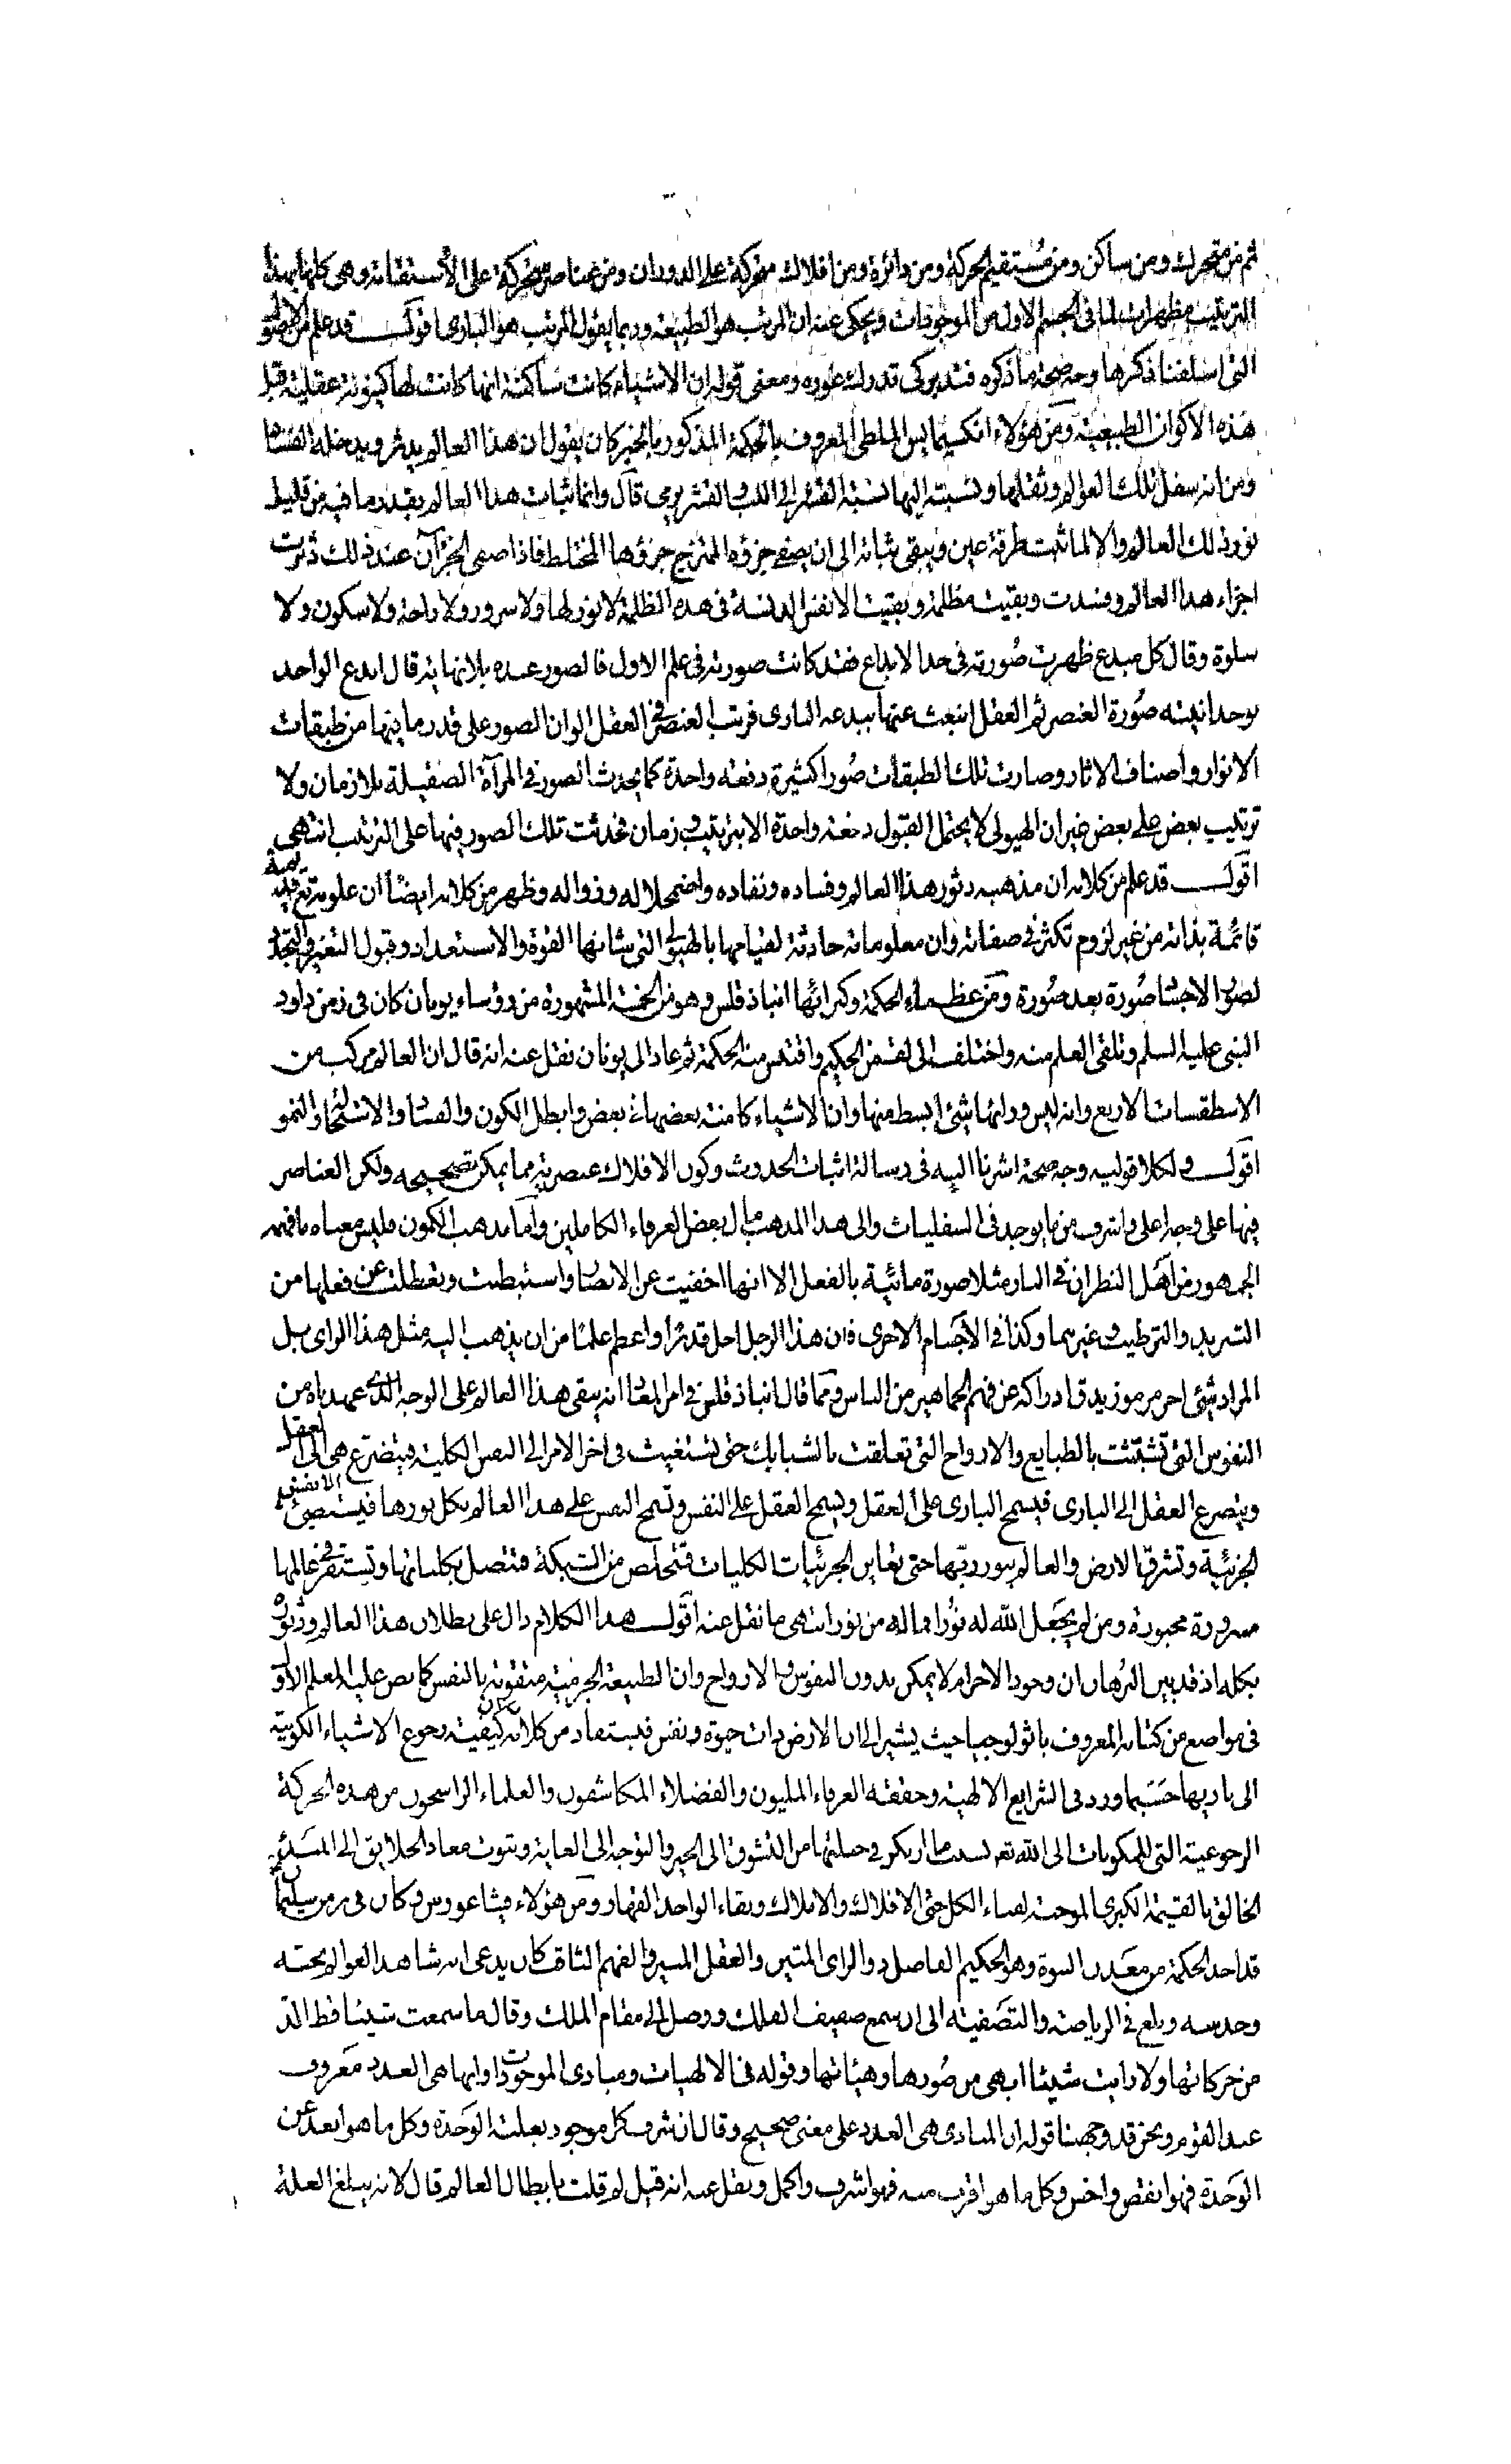 ثم من متحرك ومن ساكن ومن مستقيم الحركة ومن دائرة ومن افلاك متحركة على الدوران ومن عناصر متحركة على الاستقامة وهى كلها بهذا
الترتيب مظهرات لما فى الجسم الاول من الموجودات ويحكى عنه ان المرتب هو الطبيعة وربما يقول المرتب هو البارى اقول قد علم من الاصول
التى اسلفنا ذكرها وجه صحة ما ذكره فتدبر كى تدرك غوره ومعنى قوله ان الاشياء كانت ساكنة انها كانت لها كينونة عقلية قبل
هذه الاكوان الطبيعية ومن هؤلاء انكسيمايس الملطى المعروف بالحكمة المذكور بالخير كان يقول ان هذا العالم يدثر ويدخله الفساد
ومن انه سفل تلك العوالم وثقلها ونسبته اليها نسبة القشر الى اللب والقشر يرمى قال وانما ثبات هذا العالم بقدر ما فيه من قليل
نور ذلك العالم والا لما ثبت طرفة عين ويبقى ثباته الى ان يصفى جزؤه الممتزج جزؤها المختلط فاذا صفى الجزآن عند ذلك دثرت
اجزاء هذا العالم وفسدت وبقيت مظلمة وبقيت الانفس الدنسة فى هذه الظلمة لا نور لها ولا سرور ولا راحة ولا سكون ولا
سلوة وقال كل مبدع ظهرت صورته فى حد الابداع فقد كانت صورته فى علم الاول فالصور عنده بلا نهاية قال ابدع الواحد
بوحدانيته صورة العنصر ثم العقل انبعث عنها ببدعه البارى فرتب العنصر فى العقل الوان الصور على قدر ما فيها من طبقات
الانوار واصناف الاثار وصارت تلك الطبقات صورا كثيرة دفعة واحدة كما يحدث الصور فى المرآة الصقيلة بلا زمان ولا
ترتيب بعض على بعض غير ان الهيولى لا يحتمل القبول دفعة واحدة الا بترتيب وزمان فحدثت تلك الصور فيها على الترتيب انتهى
اقول قد علم من كلامه ان مذهبه دثور هذا العالم وفساده ونفاده واضمحلاله وزواله وظهر من كلامه ايضا ان علومه تع قديمة
قائمة بذاته من غير لزوم تكثر فى صفاته وان معلوماته حادثة لقيامها بالهيولى التى شانها القوة والاستعداد وقبول التغير والتجدد
لصور الاجسام صورة بعد صورة ومن عظماء الحكمة وكبرائها انباذقلس وهو من الخمسة المشهورة من رؤساء يونان كان فى زمن داود
النبى عليه السلم وتلقى العلم منه واختلف الى لقمن الحكيم واقتبس منه الحكمة ثم عاد الى يونان نقل عنه انه قال ان العالم مركب من
الاسطقسات الاربع وانه ليس ورائها شئ ابسط منها وان الاشياء كامنة بعضها فى بعض وابطل الكون والفساد والاستحالة والنمو
اقول ولكلا قوليه وجه صحة اشرنا اليه فى رسالة اثبات الحدوث وكون الافلاك عنصرية مما يمكن تصحيحه ولكن العناصر
فيها على وجه اعلى واشرف من ما يوجد فى السفليات والى هذا المذهب مال بعض العرفاء الكاملين واما مذهب الكمون فليس معناه ما فهمه
الجمهور من اهل النظر ان فى النار مثلا صورة مائية بالفعل الا انها اخفيت عن الابصار واستبطنت وتعطلت عن فعلها من
التبريد والترطيب وغيرهما وكذا فى الاجسام الاخرى فان هذا الرجل اجل قدرا واعظم علما من ان يذهب اليه مثل هذا الراى بل
المراد شئ اخر مرموز يدق ادراكه عن فهم الجماهير من الناس ومما قال انباذقلس فى امر المعاد انه يبقى هذا العالم على الوجه الذى عهدناه من
النفوس التى تشبثت بالطبايع والارواح التى تعلقت بالشبايك حتى تستغيث فى اخر الامر الى النفس الكلية فيتضرع هى الى العقل
ويتضرع العقل الى البارى فيسح البارى على العقل ويسح العقل على النفس وتسح النفس على هذا العالم بكل نورها فيستضئ الانفس
الجزئية وتشرق الارض والعالم بنور ربها حتى يعاين الجزئيات الكليات فتخلص من الشبكة فتتصل بكلياتها وتستقر فى عالمها
مسرورة محبورة ومن لم يجعل الله له نورا فما له من نور انتهى ما نقل عنه اقول هذا الكلام دال على بطلان هذا العالم ودثوره
بكله اذ قد بين البرهان ان وجود الاجرام لا يمكن بدون النفوس والارواح وان الطبيعة الجرمية متقومة بالنفس كما نص عليه المعلم الاول
فى مواضع من كتابه المعروف باثولوجيا حيث يشير الى ان الارض ذات حيوة ونفس فيستفاد من كلامه كيفية رجوع الاشياء الكونية
الى باريها حسبما ورد فى الشرايع الالهية وحققه العرفاء المليون والفضلاء المكاشفون والعلماء الراسخون من هذه الحركة
الرجوعية التى للمكونات الى الله تع بسبب ما ارتكز فى جبلتها من التشوق الى الخير والتوجه الى الغاية وثبوت معاد الخلايق الى
الخالق بالقيمة الكبرى الموجبة لفناء الكل حتى الافلاك والاملاك وبقاء الواحد القهار ومن هؤلاء فيثاغورس وكان فى زمن سليمان
قد اخذ الحكمة من معدن النبوة وهو الحكيم الفاضل ذو الراى المتين والعقل المنير والفهم الثاقب كان يدعى انه شاهد العوالم بحسه
وحدسه وبلغ فى الرياضة والتصفية الى ان سمع صفيف الفلك ووصل الى مقام الملك وقال ما سمعت شيئا قط الذ
من حركاتها ولا رايت شيئا ابهى من صورها وهيئاتها وقوله فى الالهيات ومبادى الموجودات وانها هى العدد معروف
عند القوم ونحن قد وجهنا قوله ان المبادى هى العدد على معنى صحيح وقال ان شرف كل موجود بغلبة الوحدة وكل ما هو ابعد عن
الوحدة فهو انقص واخس وكل ما هو اقرب منه فهو اشرف واكمل ونقل عنه انه قيل لم قلت بابطال العالم قال لانه يبلغ العلة